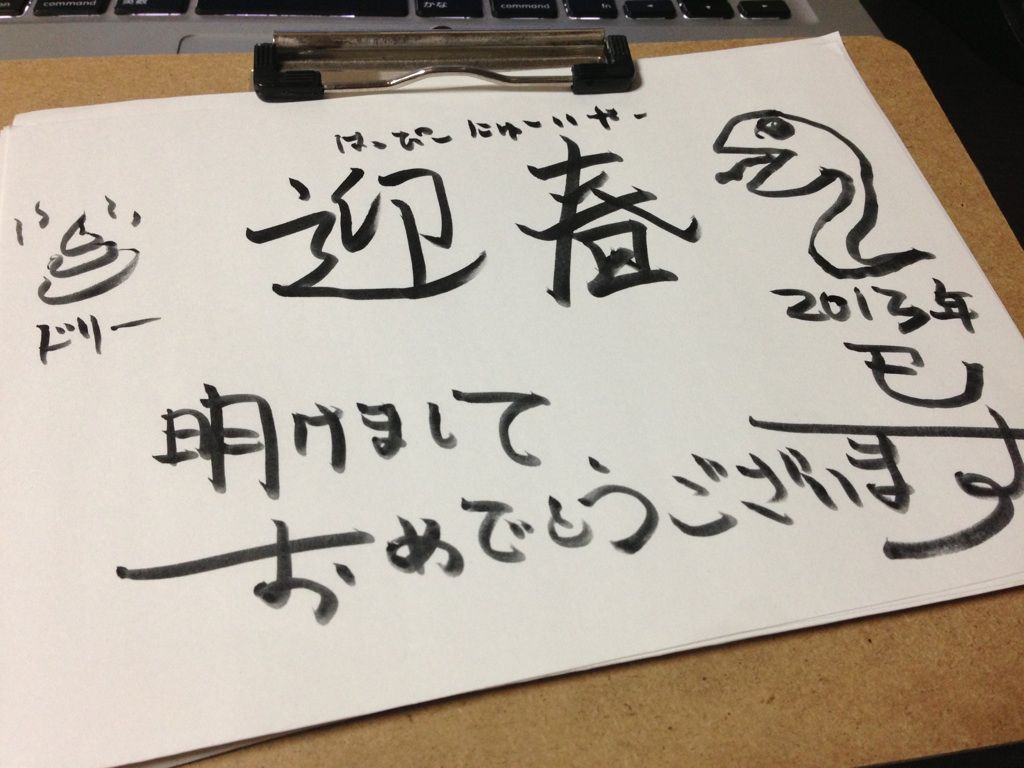 英数
かな
command
fn
command
はっぴーにゅーいやー
迎春
2013年
巳
ドリー
明けまして
おめでとうございます